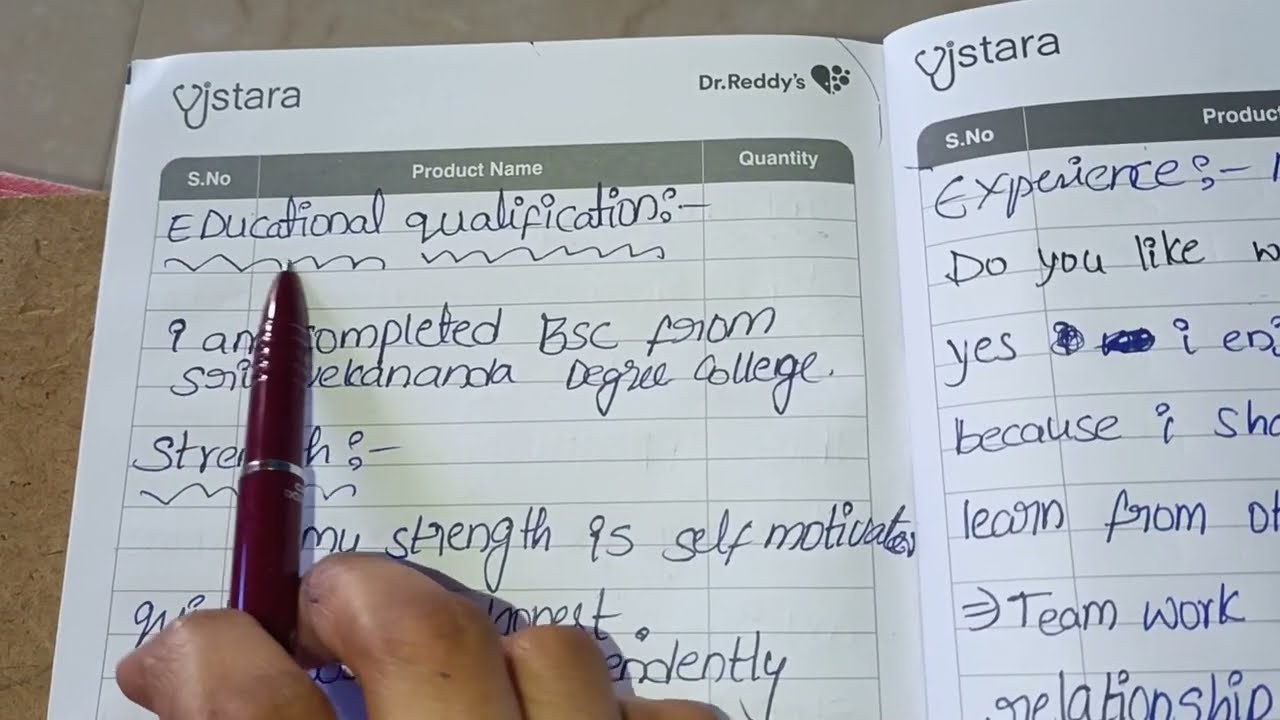 Vistara
Dr.Reddy's
S.No Product Name Quantity
EDucational qualification:-
i am completed BSC from
Degree College.
Strength :-
my strength is self motivated
honest
Vistara
S.No
Experience:-
Do you like
yes i
because i
learn from
⇒ Team work
relationship